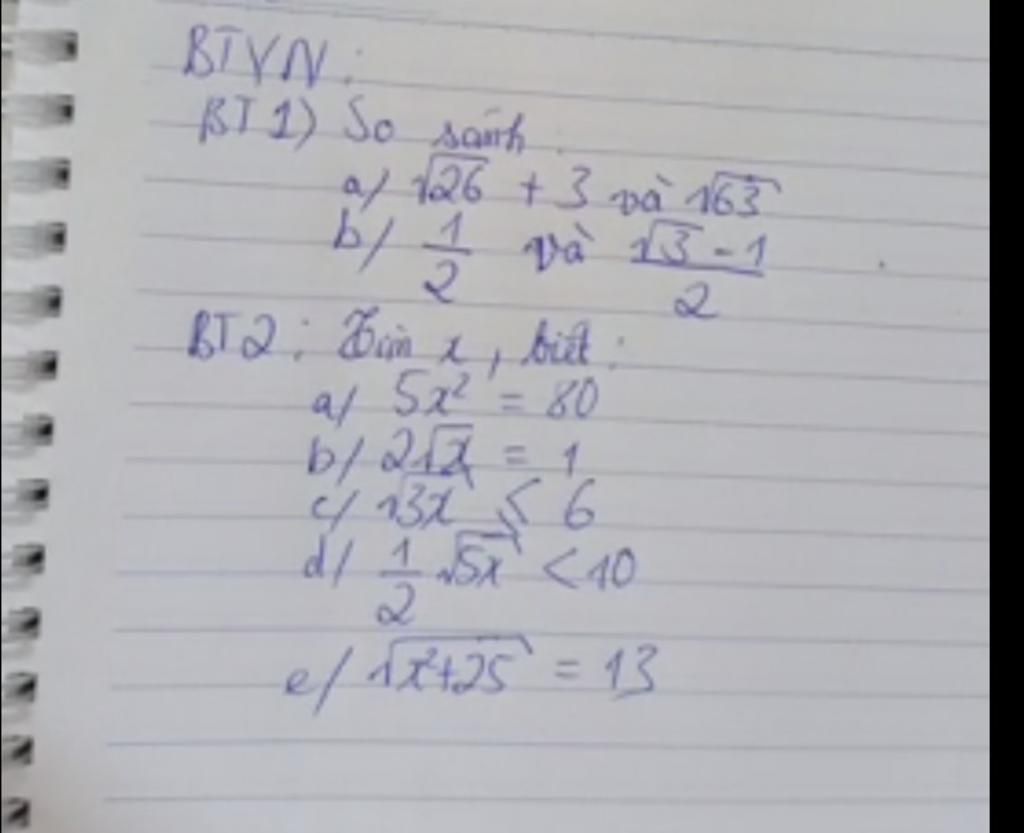 BTVN:
BT1) So sánh:
a/ √26 + 3 và √63
b/ 1/2 và (√3 - 1)/2
BT2: Tìm x, biết:
a/ 5x² = 80
b/ 2√x = 1
c/ √3x ≤ 6
d/ 1/2 √5x < 10
e/ √(x²+25) = 13